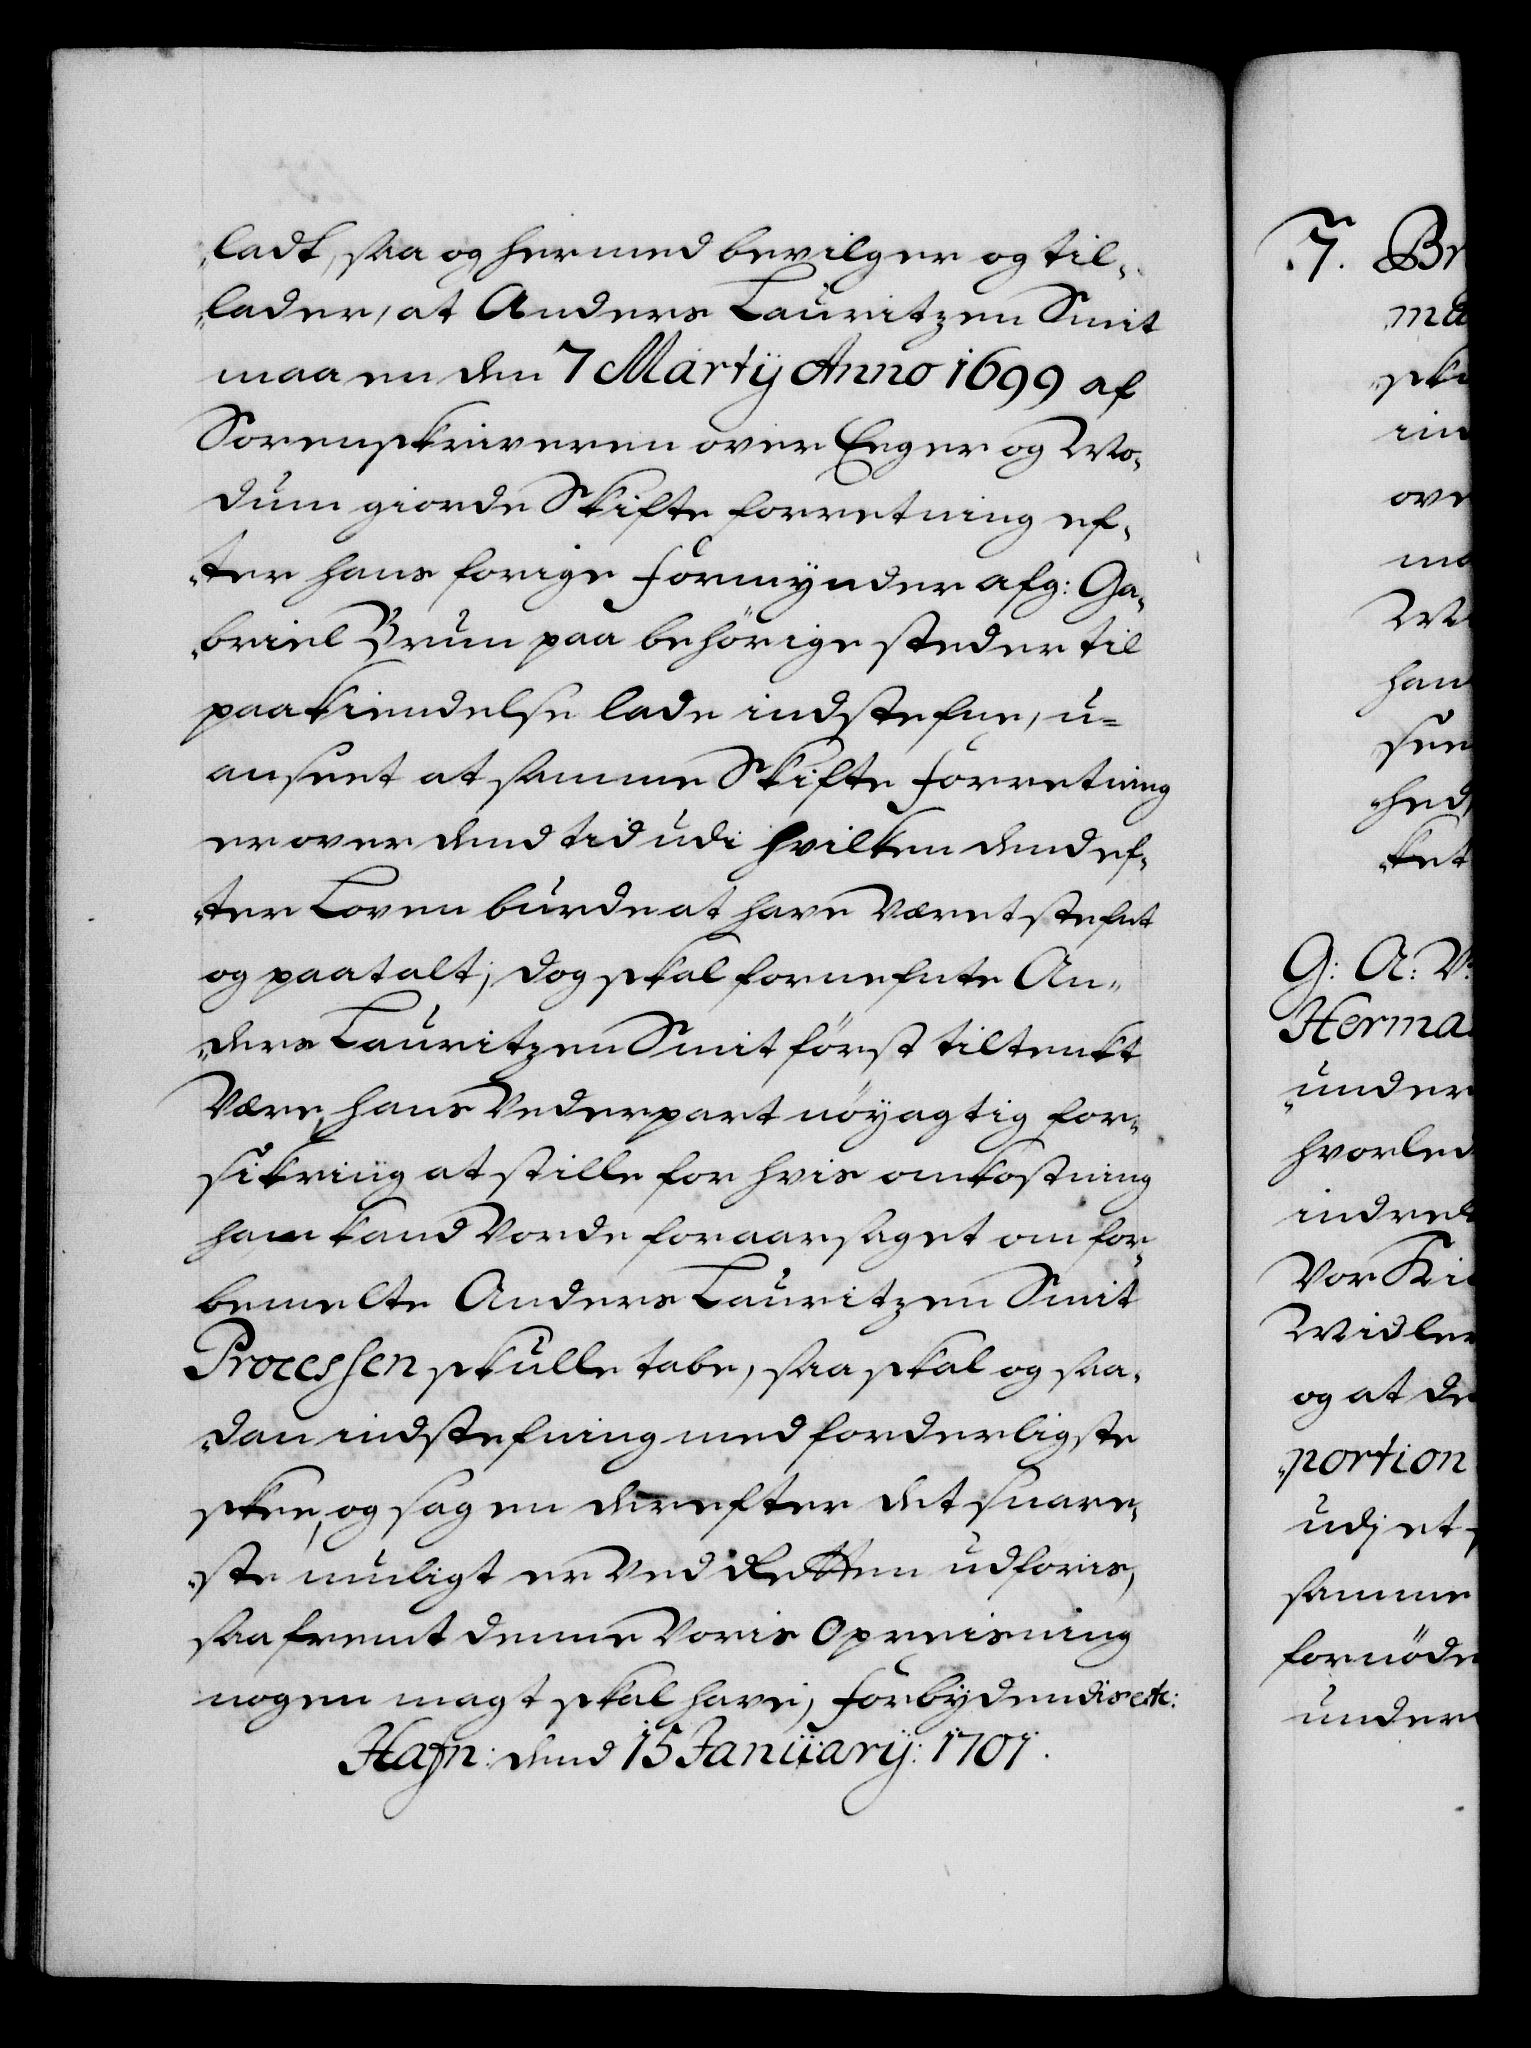 „ladt, saa og hermed bevilger og til„
„lader, at Anders Lauritzen Smit
maa en den 7 Martij Anno 1699 af
Sorenskriveren over Eeger og Mo„
dum giorde Skifte forretning ef„
„ter hans forige formynder afg: Ga„
„briel Brun paa behörige steder til
paakiendelse lade indstefne, u=
anseet at samme Skifte forretning
er over dend tid udi hvilken dend ef„
„ter Loven burde at have været stefnt
og paatalt; dog skal fornefnte An„
„ders Lauritzen Smit först tiltenkt
være, hans Vederpart nöyagtig for„
sikring at stille for hvis omkostning
ham kand vorde foraarsaget om for„
bemelte Anders Lauritzen Smit
Processen skulle tabe, saa skal og saa„
„dan indstefning med forderligste
skee, og sagen derefter det snare„
„ste muligt er ved Retten udföris,
saafremt denne voris Opreisning
nogen magt skal have, forbydendis etc:
Hafn: dend 15 January: 1701.
7. Br
ma
„ski
in
ove
ma
han
„hed
„ket
G: A: V:
Herma
„under
hvorled
indret
Vor Ki
Widle
og at de
„portion
udj et
samme
fornöde
under